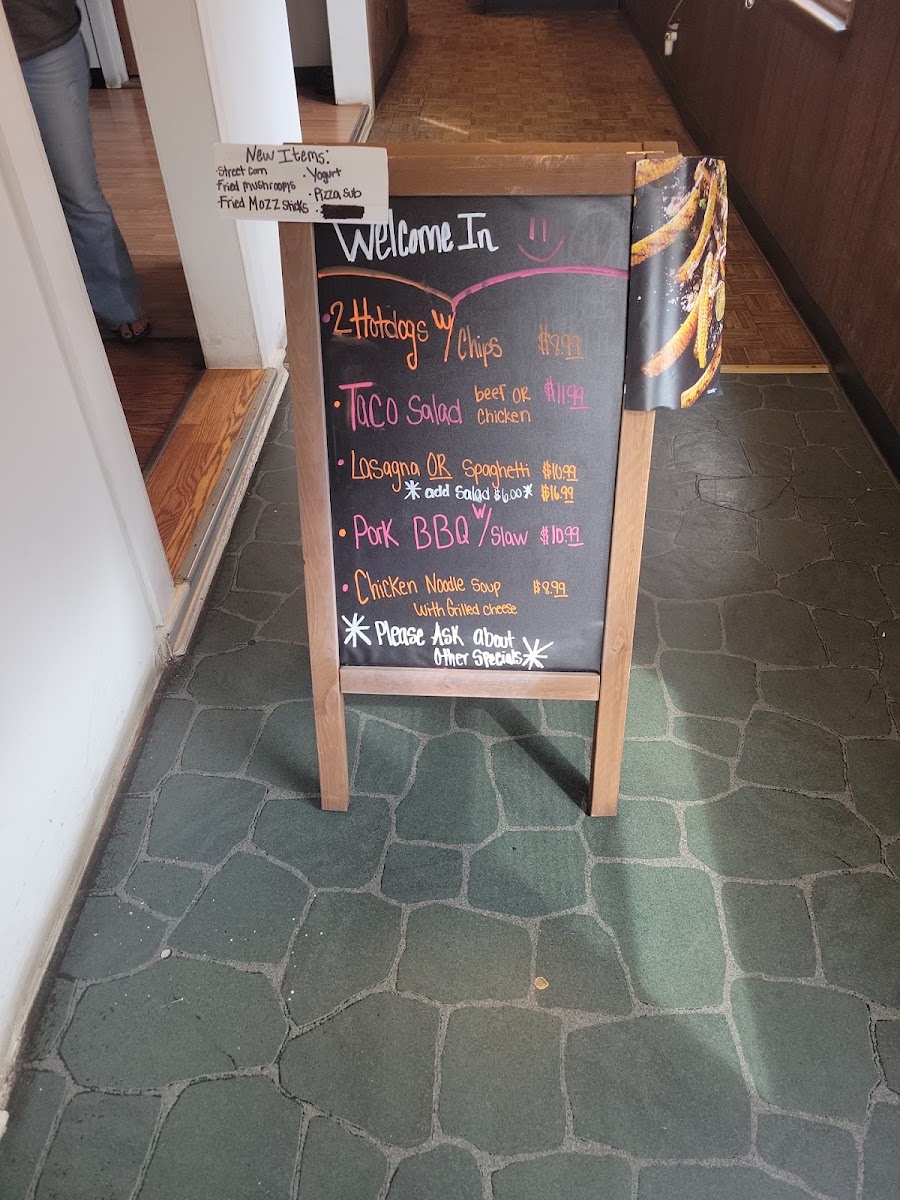 New Items:
·Street Corn
·Fried mushrooms
·Fried Mozz Sticks
·Yogurt
·Pizza Sub
Welcome In
·2 Hotdogs w/ Chips $8.99
·Taco Salad beef OR Chicken $11.99
·Lasagna OR Spaghetti $10.99
*add Salad $6.00* $16.99
·Pork BBQ w/ Slaw $10.99
·Chicken Noodle Soup $8.99
With Grilled Cheese
*Please Ask about
Other Specials*